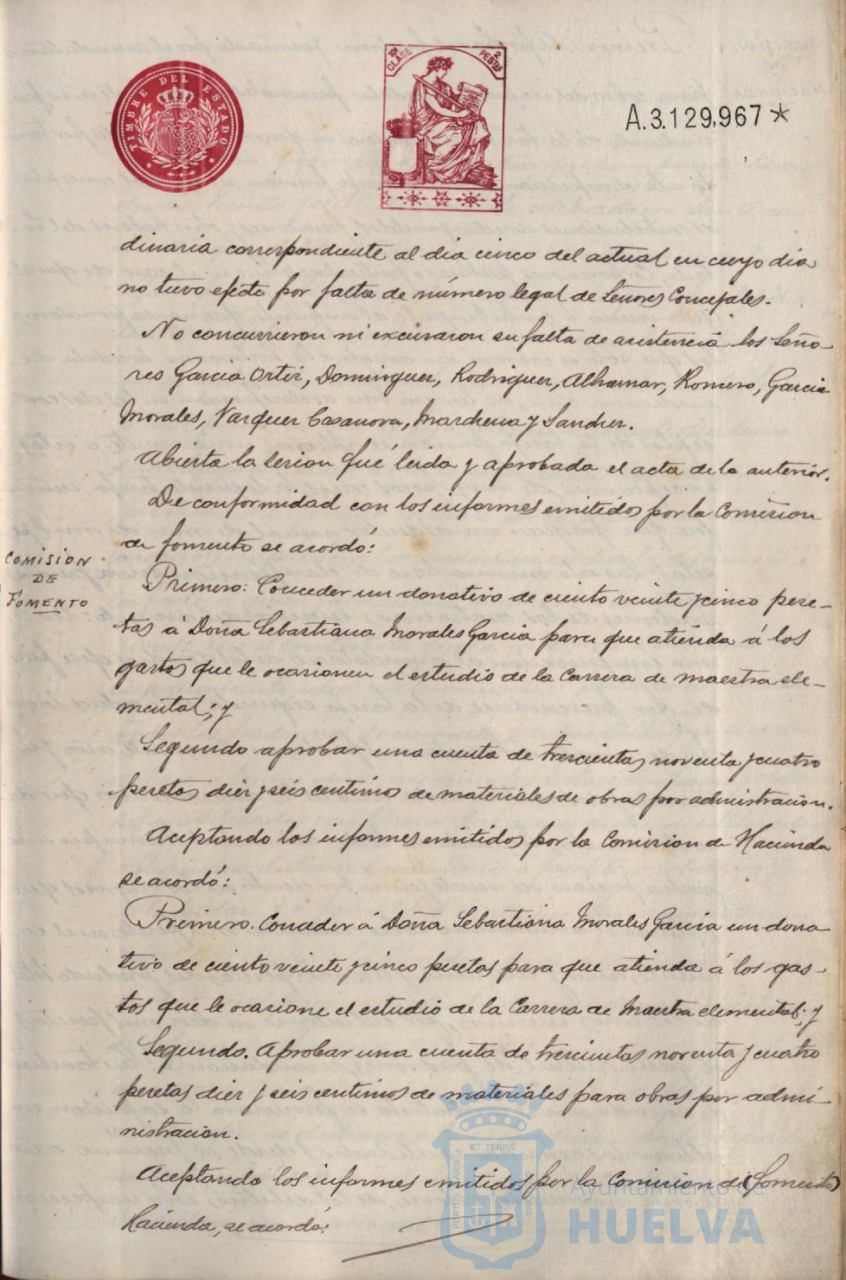 TIMBRE DEL ESTADO
10ª CLASE 2 PESTAS
A.3.129,967*
dinaria correspondiente al dia cinco del actual en cuyo dia
no tuvo efecto por falta de número legal de Señores Concejales.
No concurrieron ni excusaron su falta de asistencia los Seño-
res Garcia Ortiz, Dominguez, Rodriguez, Alhamar, Romero, Garcia
Morales, Vazquez Casanova, Marchena y Sanchez.
Abierta la sesion fué leida y aprobada el acta de la anterior.
De conformidad con los informes emitidos por la Comision
de fomento se acordó:
COMISION
DE
FOMENTO
Primero: Conceder un donativo de ciento veinte y cinco pese-
tas á Doña Sebastiana Morales Garcia para que atienda á los
gastos que le ocasionen el estudio de la Carrera de maestra ele-
mental; y
Segundo aprobar una cuenta de trescientas noventa y cuatro
pesetas diez y seis centimos de materiales de obras por administracion.
Aceptando los informes emitidos por la Comision de Hacienda
se acordó:
Primero. Conceder á Doña Sebastiana Morales Garcia un dona-
tivo de ciento veinte y cinco pesetas para que atienda á los gas-
tos que le ocasione el estudio de la Carrera de Maestra elemental; y
Segundo. Aprobar una cuenta de trescientas noventa y cuatro
pesetas diez y seis centimos de materiales para obras por admi-
nistracion.
Aceptando los informes emitidos por la Comision de (Fomento)
Hacienda, se acordó:
ET TERRÆ
PORTUS MARIS
Ayuntamiento de
HUELVA